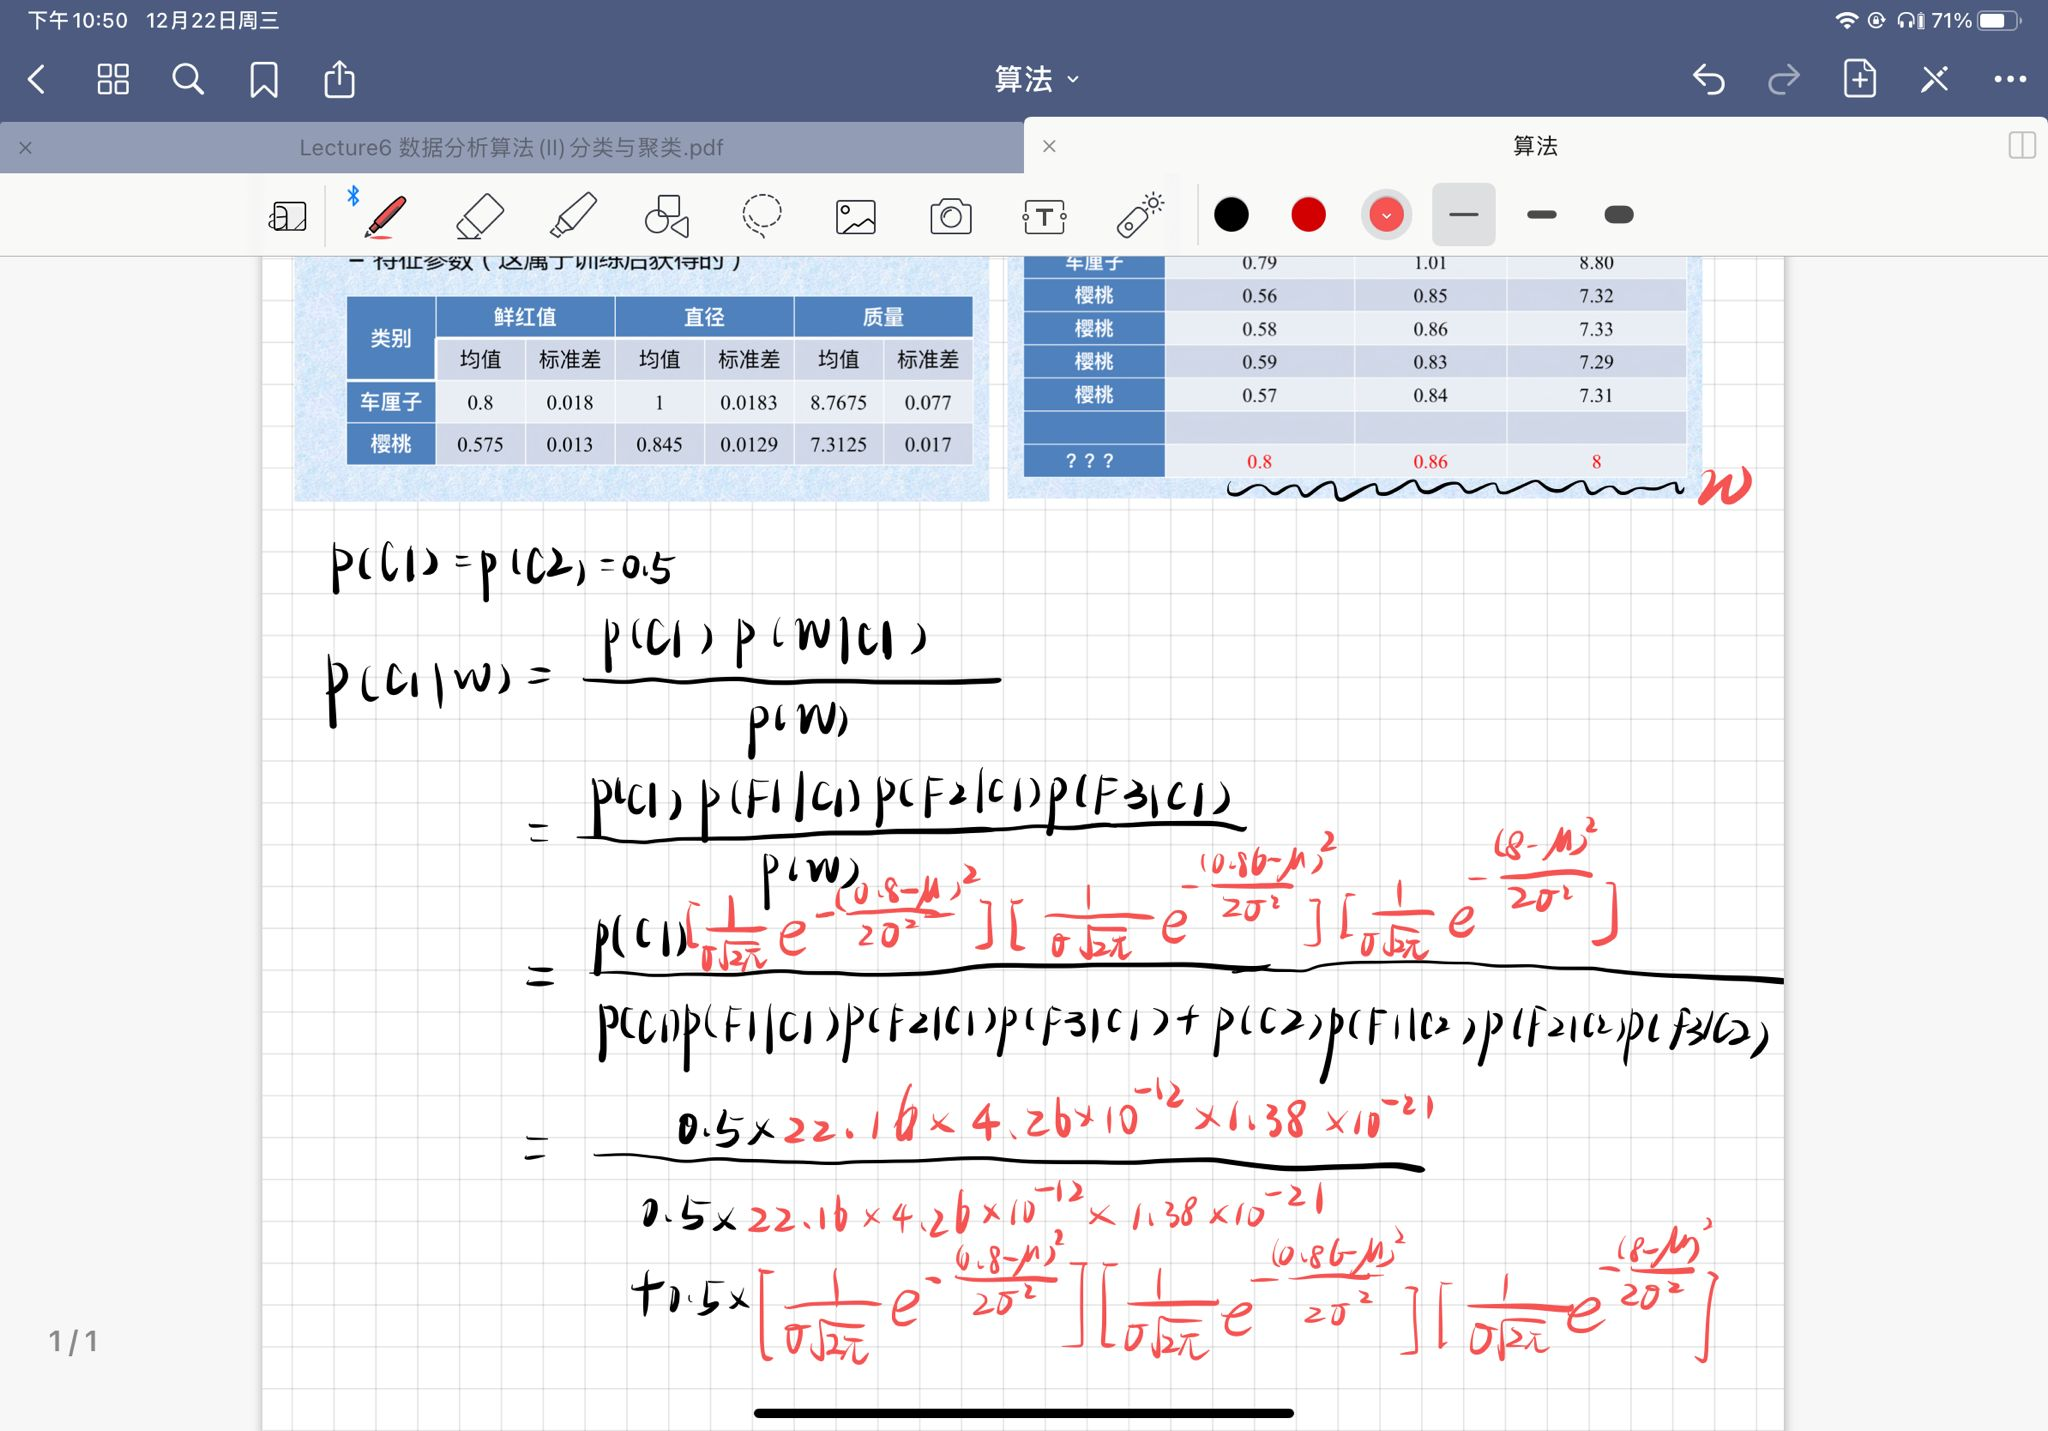 下午10:50 12月22日周三 71%
算法
Lecture6 数据分析算法(II)分类与聚类.pdf
算法
– 特征参数(这属于训练后获得的)
类别 鲜红值 直径 质量
均值 标准差 均值 标准差 均值 标准差
车厘子 0.8 0.018 1 0.0183 8.7675 0.077
樱桃 0.575 0.013 0.845 0.0129 7.3125 0.017
车厘子 0.79 1.01 8.80
樱桃 0.56 0.85 7.32
樱桃 0.58 0.86 7.33
樱桃 0.59 0.83 7.29
樱桃 0.57 0.84 7.31
??? 0.8 0.86 8
W
P(C1)=P(C2)=0.5
P(C1|W)= P(C1)P(W|C1)
P(W)
= P(C1)P(F1|C1)P(F2|C1)P(F3|C1)
P(W)
= P(C1)[1/σ√2π e^-(0.8-μ)²/2σ²][1/σ√2π e^-(0.86-μ)²/2σ²][1/σ√2π e^-(8-μ)²/2σ²]
P(C1)P(F1|C1)P(F2|C1)P(F3|C1)+P(C2)P(F1|C2)P(F2|C2)P(F3|C2)
= 0.5×22.16×4.26×10^-12×1.38×10^-21
0.5×22.16×4.26×10^-12×1.38×10^-21
+0.5×[1/σ√2π e^-(0.8-μ)²/2σ²][1/σ√2π e^-(0.86-μ)²/2σ²][1/σ√2π e^-(8-μ)²/2σ²]
1/1